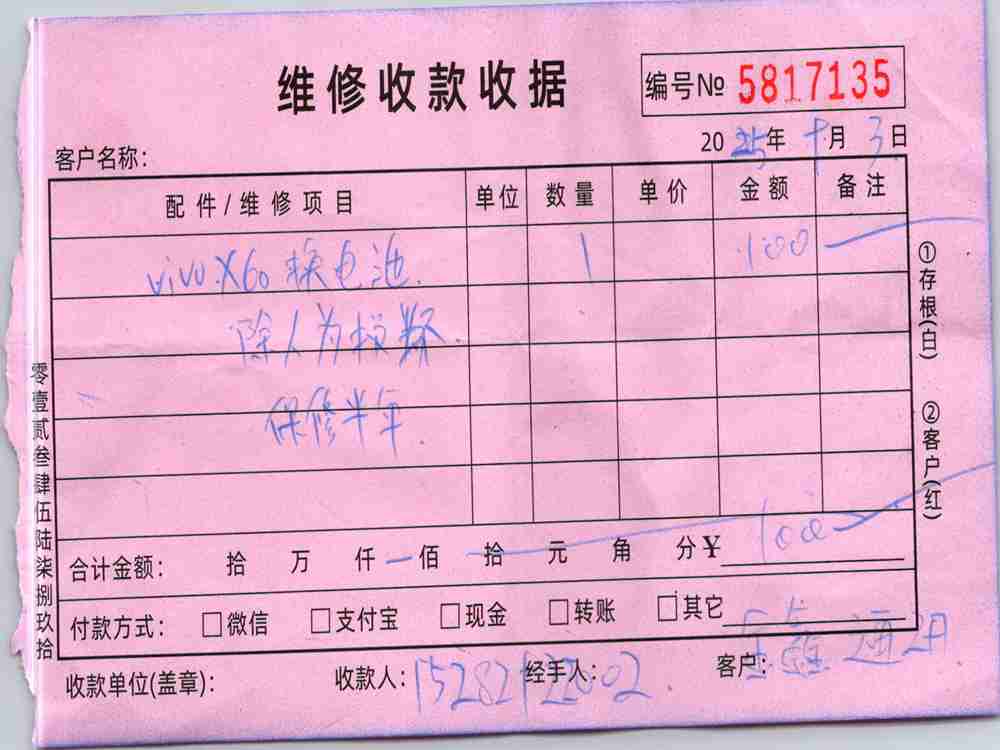 维修收款收据
编号№ 5817135
客户名称：
2025年 十月 3日
配件/维修项目 单位 数量 单价 金额 备注
vivo X60 换电池 1 100
除人为损坏
保修半年
合计金额： 拾 万 仟 一佰 拾 元 角 分 ¥ 100
付款方式： □微信 □支付宝 □现金 □转账 □其它
收款单位(盖章)： 收款人： 经手人： 客户： 通讯
零壹贰叁肆伍陆柒捌玖拾
①存根(白) ②客户(红)